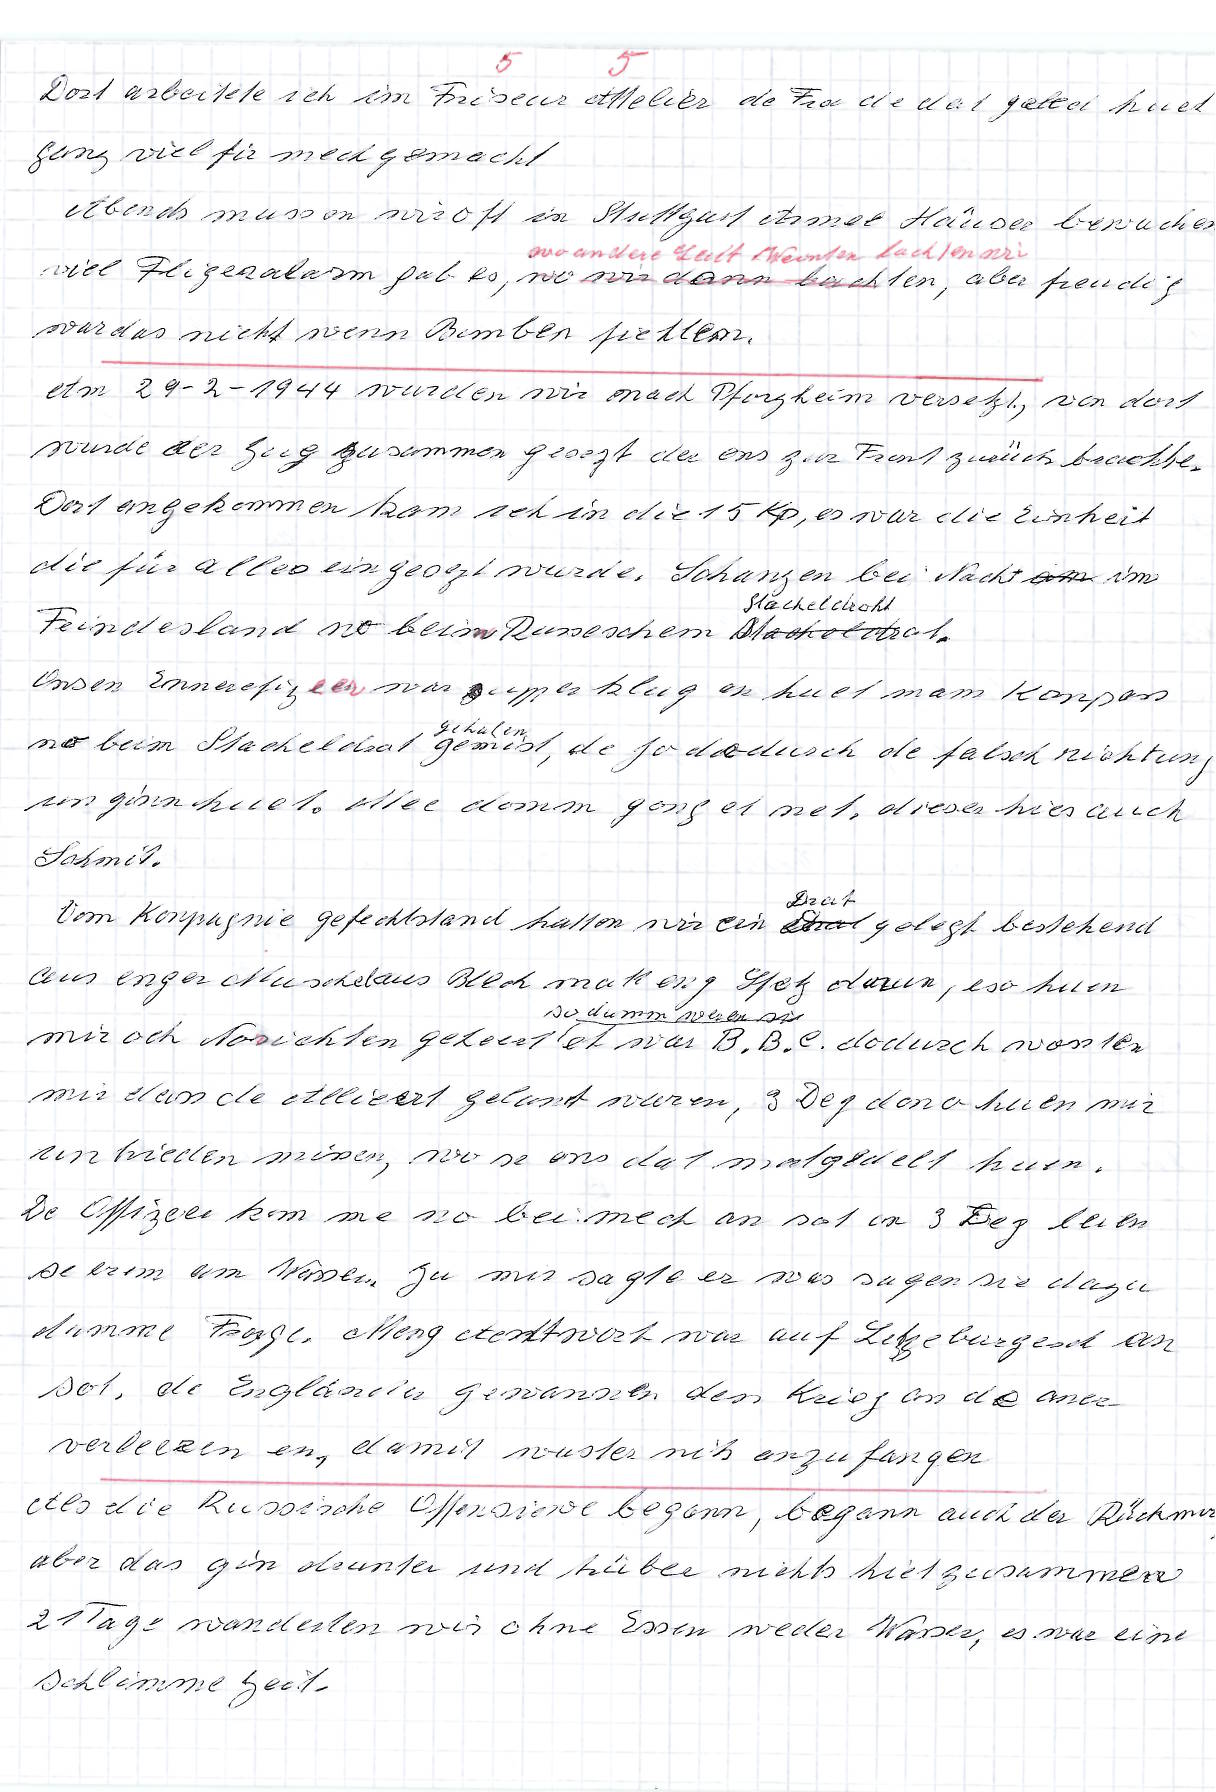 5 5
Dort arbeitete ich im Friseur Atelier de Fra de dat geleed huet
ganz viel fir mech gemacht
Abends mussen wir oft in Stuttgart Armee Häuser bewachen
wo andere Leit Weinten lachten wir
viel Fligeralarm gab es, wo wir dann lachten, aber freudig
war das nicht wenn Bomben fiellen.
Am 29-2-1944 wurden wir nach Pforzheim versetzt, von dort
wurde der Zug zusammen gesezt der ons zur Front zurück brachte.
Dort angekommen kam ich in die 15 Kp, es war die Einheit
die für alles eingesezt wurde. Schanzen bei Nacht am im
Stacheldraht
Feindesland no beim Russeschem Stacheldrat.
Onsen Ennerofizeer war supper klug en huet mam Kompas
gehalen
no beim Stacheldrat gemist, de jo dodurch de falsch richtung
un ginn huet. Alles domm gong et net, dieser hies auch
Schmit.
Drat
Vom Kompagnie gefechtstand hatten wir ein Drat gelegt bestehend
aus enger Muschel aus Blech mat eng Spetz drun, eso huen
so dumm waren sie
mir och Norichten geheert et war B.B.C. dodurch wosten
mir dass de Alliert gelant waren, 3 Deg dono huen mir
untrieden missen, wo se ons dat matgedelt huen.
De Offizeer kom me no bei mech an sot in 3 Deg leien
se erem am Wasser. Zu mir sagte er was sagen sie dazu
damme Froge. Meng Aentwort war auf Letzeburgesch an
sot, de Engländer gewannen den Krieg an de aner
verleezen en, damit wuster nits anzufangen
Als die Russische Offensieve begann, begann auch der Rückmar
aber das gin drunter und trüber nichts hielt zusammen
21 Tage wanderten wir ohne Essen weder Wasser, es war eine
schlimme Zeit.